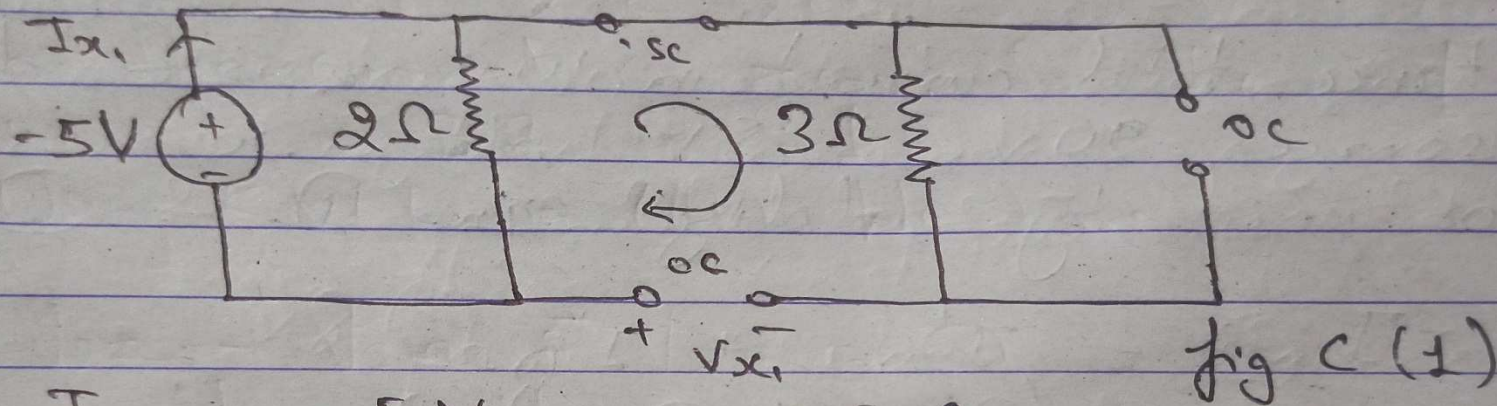 Ix₁
SC
-5V + - 2Ω 3Ω OC
OC
+ Vx₁ -
fig C (1)